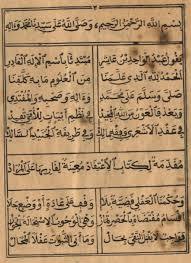 ٢
بسم الله الرحمن الرحيم وصلى الله على سيدنا محمد وآله
يقول عبد الواحد بن عاشر مبتدئا باسم الإله القادر
الحمد لله الذي علمنا من العلوم ما به كلفنا
صلى وسلم على محمد وآله وصحبه والمقتدي
وبعد فالعون من الله المجيد في نظم أبيات للأمي تفيد
في عقد الأشعري وفقه مالك وفي طريقة الجنيد السالك
مقدمة لكتاب الاعتقاد معينة لقارئها على المراد
وحكمنا العقلي قضية بلا وقف على عادة أو وضع جلا
أقسام مقتضاه بالحصر تماز وهي الوجوب الاستحالة الجواز
فواجب لا يقبل النفي بحال وما أبى الثبوت عقلا المحال